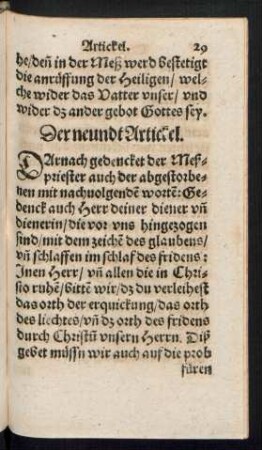 Artickel. 29
he/deñ in der Meß werd bestetigt
die anrüffung der Heiligen/ wel-
che wider das Vatter vnser/ vnd
wider dz ander gebot Gottes sey.
Der neundt Artickel.
DArnach gedencket der Meß-
priester auch der abgestorbe-
nen mit nachuolgendẽ wortẽ: Ge-
denck auch Herr deiner diener vñ
dienerin/ die vor vns hingezogen
sind/ mit dem zeichẽ des glaubens/
vñ schlaffen im schlaf des fridens:
Inen Herr/ vñ allen die in Chri-
sto ruhẽ/ bittẽ wir/ dz du verleihest
das orth der erquickung/ das orth
des liechtes/ vñ dz orth des fridens
durch Christũ vnsern Herrn. Diß
gebet müssn wir auch auf die prob
füren